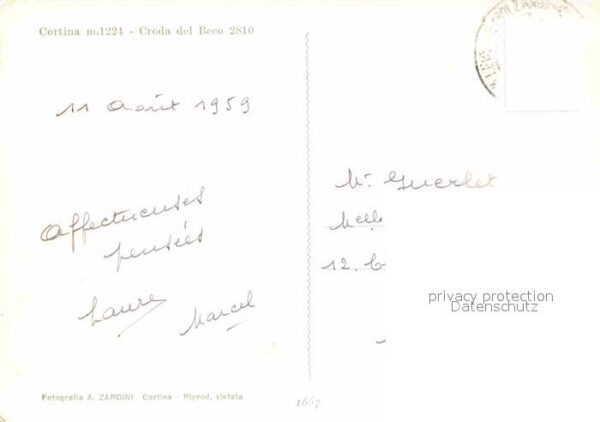 Cortina m.1224 - Croda del Beco 2810
11 Août 1959
Affectueuses
pensées
Laure
Marcel
Mr. Guerlet
Melle
12.
privacy protection
Datenschutz
Fotografia A. ZARDINI Cortina - Riprod. vietata
1667